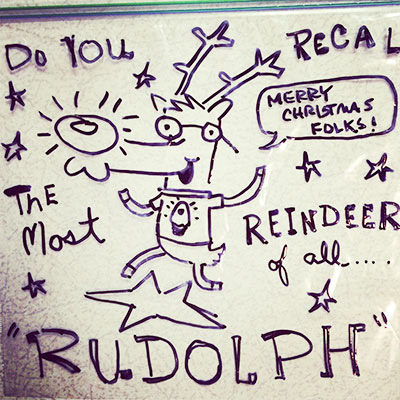 DO YOU RECAL
MERRY
CHRISTMAS
FOLKS!
THE
MOST REINDEER
of all....
"RUDOLPH"